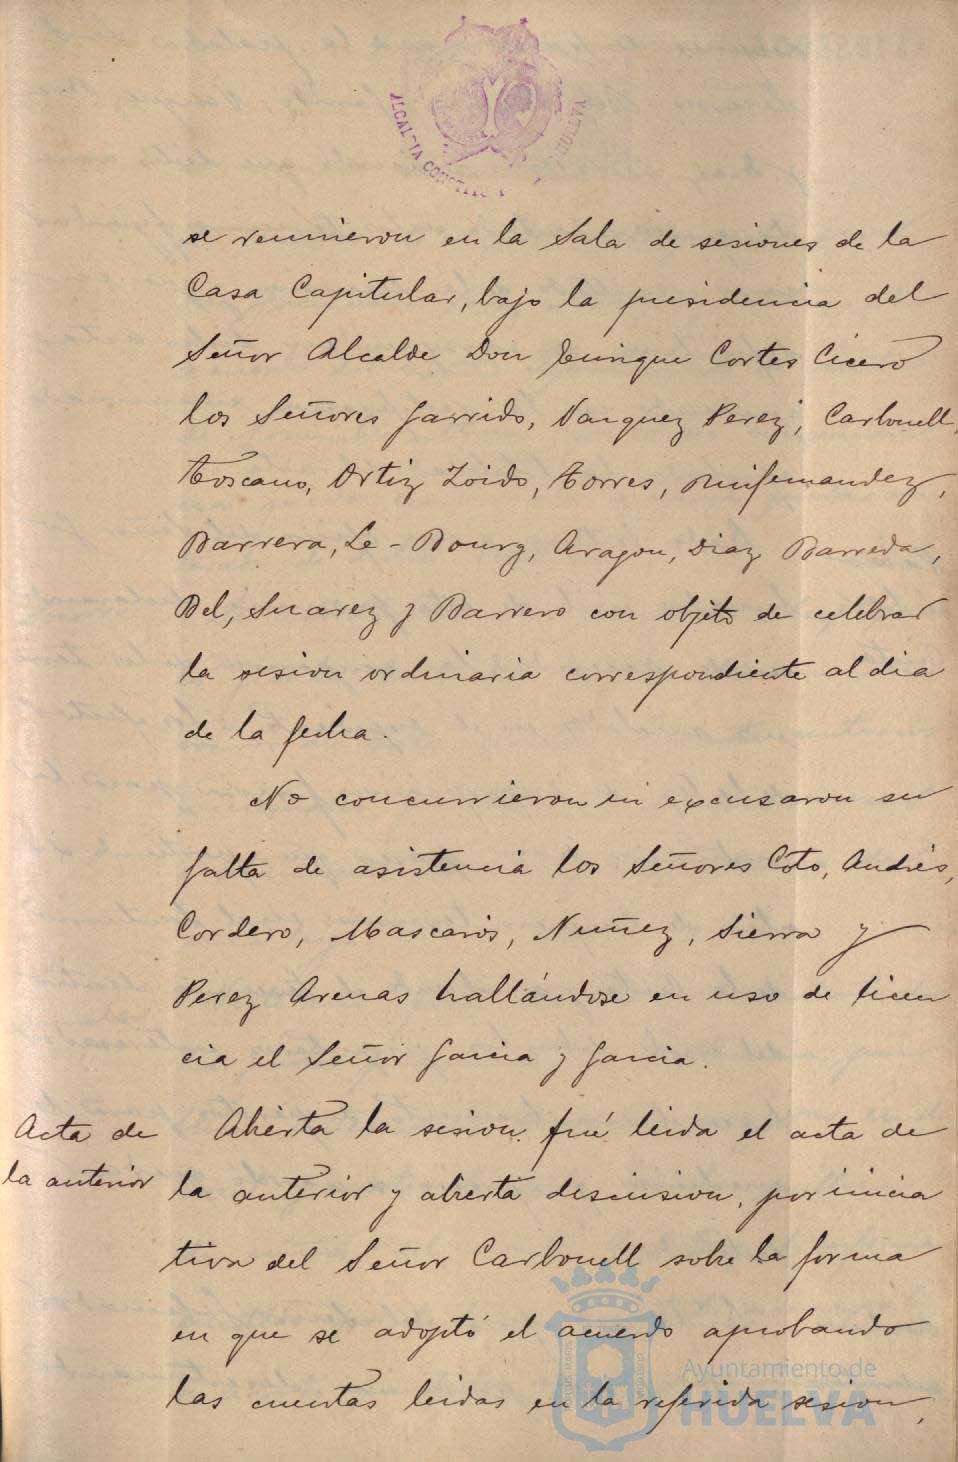 ALCALDIA CONSTIT HUELVA
se reunieron en la Sala de sesiones de la
Casa Capitular, bajo la presidencia del
Señor Alcalde Don Enrique Cortes Cicero
los Señores Garrido, Vazquez Perez, Carbonell,
Toscano, Ortiz Zoido, Torres, Ruifernandez,
Barrera, Le-Bourg, Aragon, Diaz Barreda,
Bel, Suarez y Barrero con objeto de celebrar
la sesion ordinaria correspondiente al dia
de la fecha.
No concurrieron ni excusaron su
falta de asistencia los Señores Coto, Andrés,
Cordero, Mascarós, Nuñez, Sierra y
Perez Arenas hallándose en uso de licen
cia el Señor Garcia y Garcia.
Acta de
la anterior
Abierta la sesion fué leida el acta de
la anterior y abierta discusion, por inicia
tiva del Señor Carbonell sobre la forma
en que se adoptó el acuerdo aprobando
las cuentas leidas en la referida sesion,
Ayuntamiento de
HUELVA